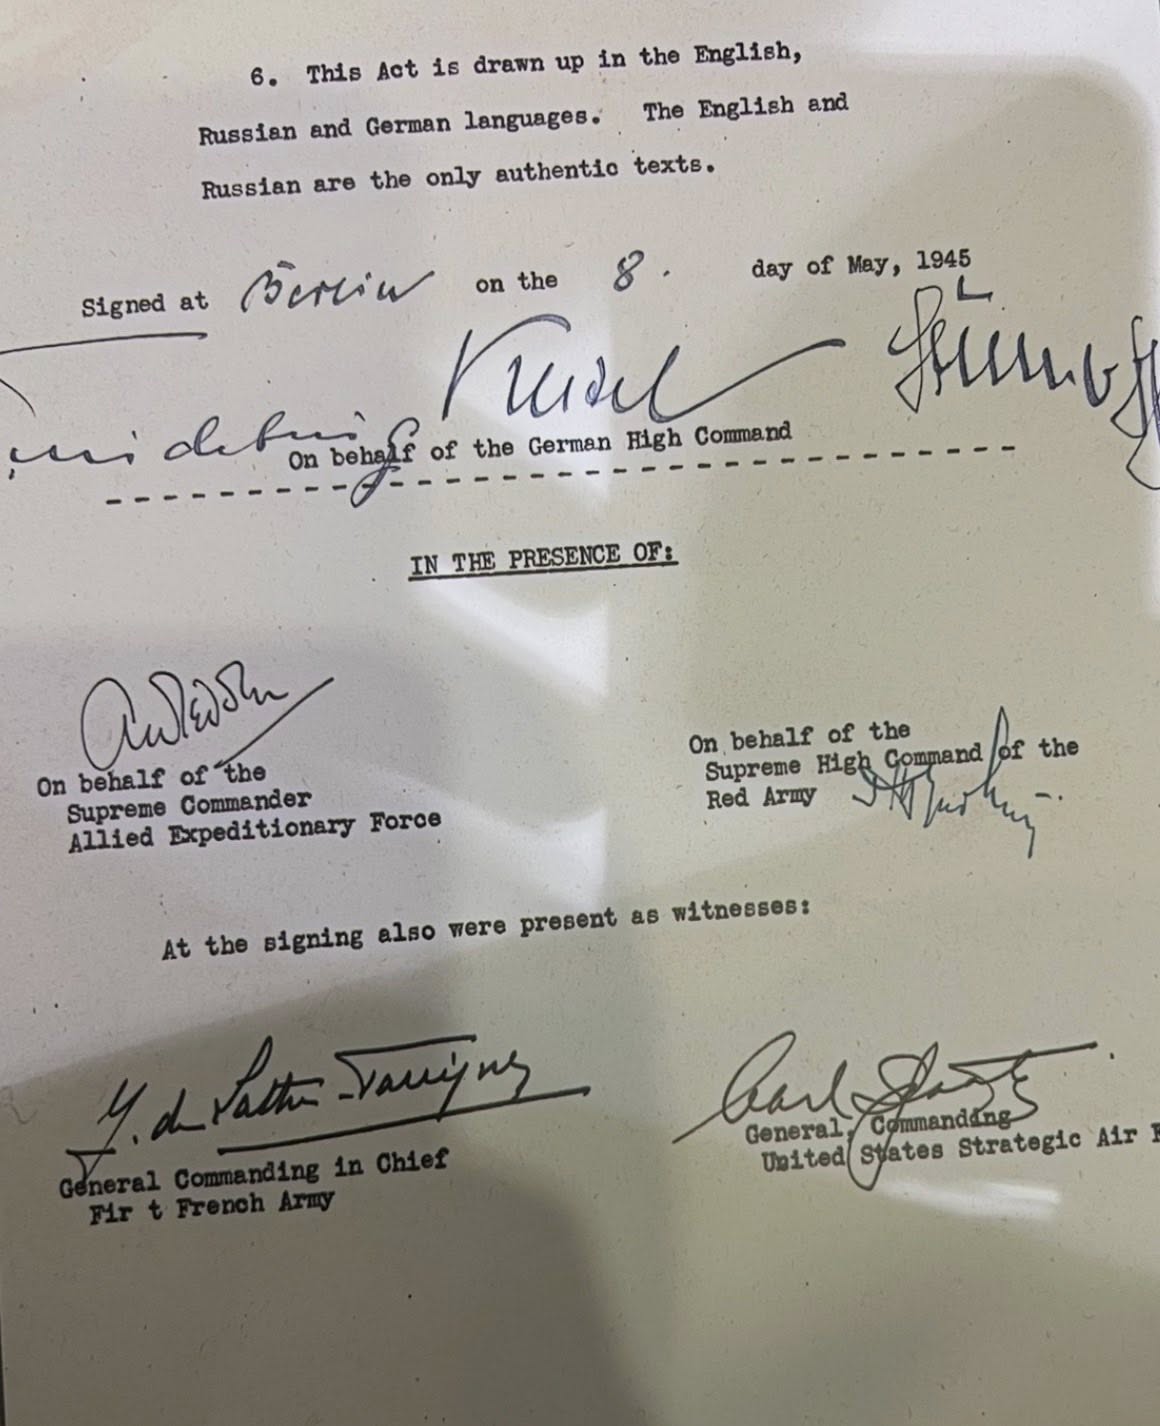 6. This Act is drawn up in the English,
Russian and German languages. The English and
Russian are the only authentic texts.
Signed at Berlin on the 8. day of May, 1945
Keitel
On behalf of the German High Command
IN THE PRESENCE OF:
On behalf of the
Supreme Commander
Allied Expeditionary Force
On behalf of the
Supreme High Command of the
Red Army
At the signing also were present as witnesses:
J. de Lattre-Tassigny
General Commanding in Chief
Fir t French Army
Carl Spaatz
General, Commanding
United States Strategic Air